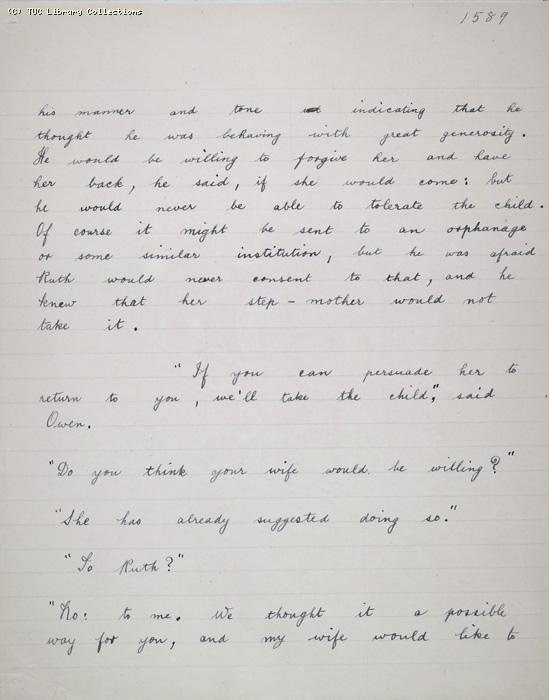 (C) TUC Library Collections
1589
his manner and tone indicating that he
thought he was behaving with great generosity.
He would be willing to forgive her and have
her back, he said, if she would come: but
he would never be able to tolerate the child.
Of course it might be sent to an orphanage
or some similar institution, but he was afraid
Ruth would never consent to that, and he
knew that her step-mother would not
take it.
"If you can persuade her to
return to you, we'll take the child," said
Owen.
"Do you think your wife would be willing?"
"She has already suggested doing so."
"To Ruth?"
"No: to me. We thought it a possible
way for you, and my wife would like to